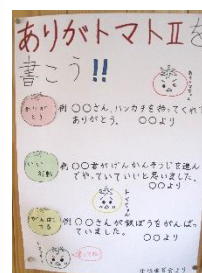 ありがトマトⅡを
書こう!!
ありが
とう
例 〇〇さん、ハンカチを拾ってくれて
ありがとう。 〇〇より
いい
行動
例 〇〇君がげんかんそうじを進ん
でやっていていいと思いました。
〇〇より
がんばっ
てる
例 〇〇さんが鉄ぼうをがんばっ
ていました。 〇〇より